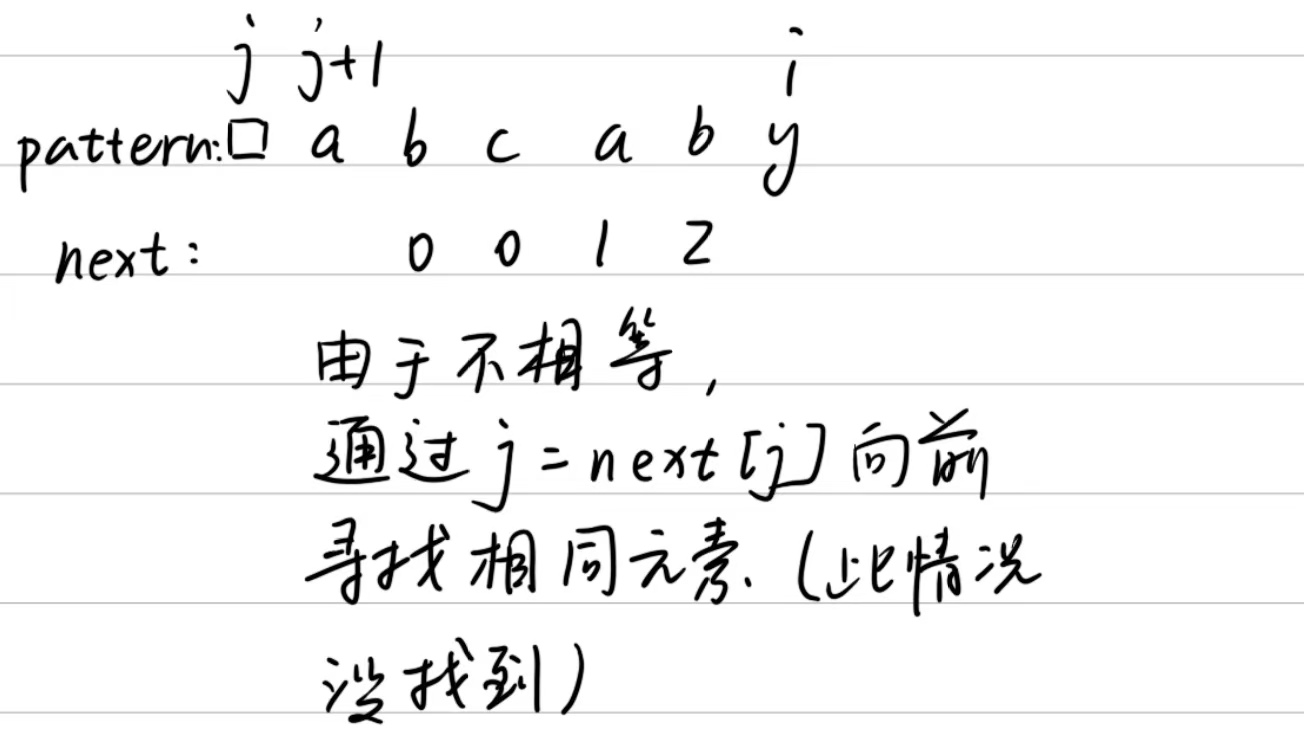 j j+1 i
pattern:□ a b c a b y
next: 0 0 1 2
由于不相等,
通过j=next[j]向前
寻找相同元素.(此情况
没找到)